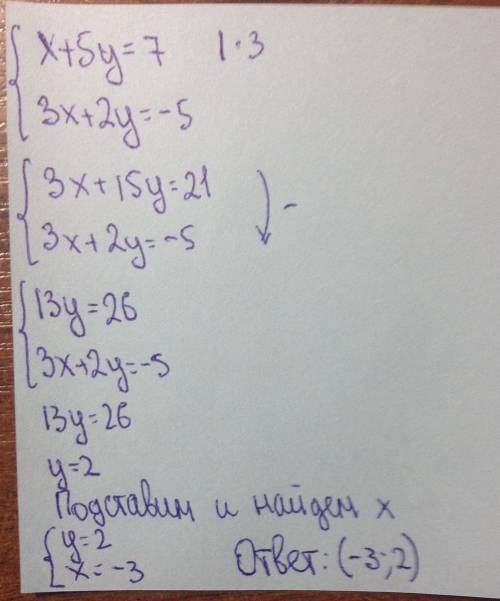 x+5y=7 | · 3
3x+2y=-5
3x+15y=21
3x+2y=-5 -
13y=26
3x+2y=-5
13y=26
y=2
Подставим и найдем x
y=2
x=-3 Ответ: (-3;2)